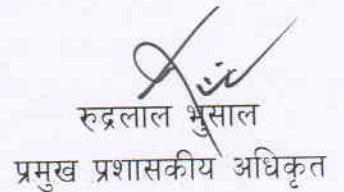 रुद्रलाल भुसाल
प्रमुख प्रशासकीय अधिकृत